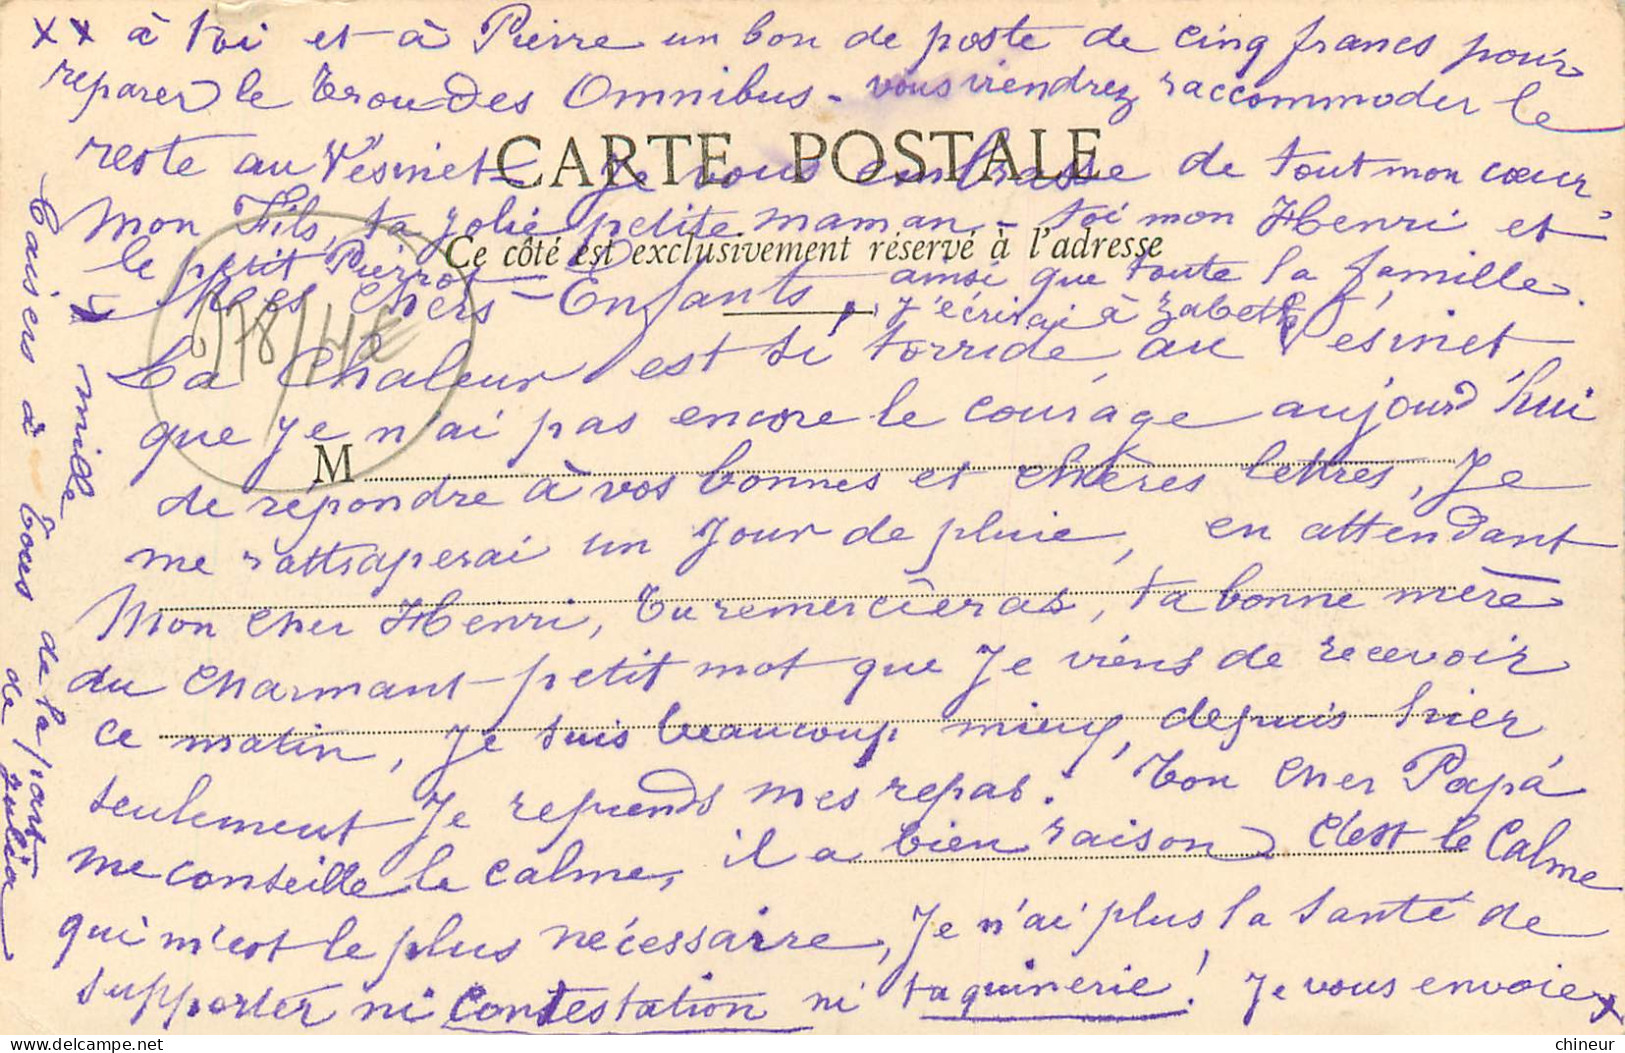 xx à toi et à Pierre un bon de poste de cinq francs pour
reparer le trou des Omnibus - vous viendrez raccommoder le
reste au Vésinet - Je vous embrasse de tout mon cœur
CARTE POSTALE
mon Fils, ta jolie petite maman - toi mon Henri et
le petit Pierrot - ainsi que toute la famille.
Ce côté est exclusivement réservé à l'adresse
Mes Chers Enfants, j'écrirai à Zabeth
178/42
La Chaleur est si torride au Vésinet
que je n'ai pas encore le courage aujourd'hui
M
de répondre à vos bonnes et chères lettres, Je
me rattraperai un jour de pluie, en attendant
Mon cher Henri, tu remercieras, ta bonne mère
du charmant petit mot que Je viens de recevoir
ce matin, Je suis beaucoup mieux, depuis hier
seulement Je reprends mes repas. Ton cher Papa
me conseille le calme, il a bien raison C'est le Calme
qui m'est le plus nécessaire, Je n'ai plus la santé de
supporter ni contestation ni taquinerie! Je vous envoie x
mille
baisers à tous de la part
de Julia
chineur